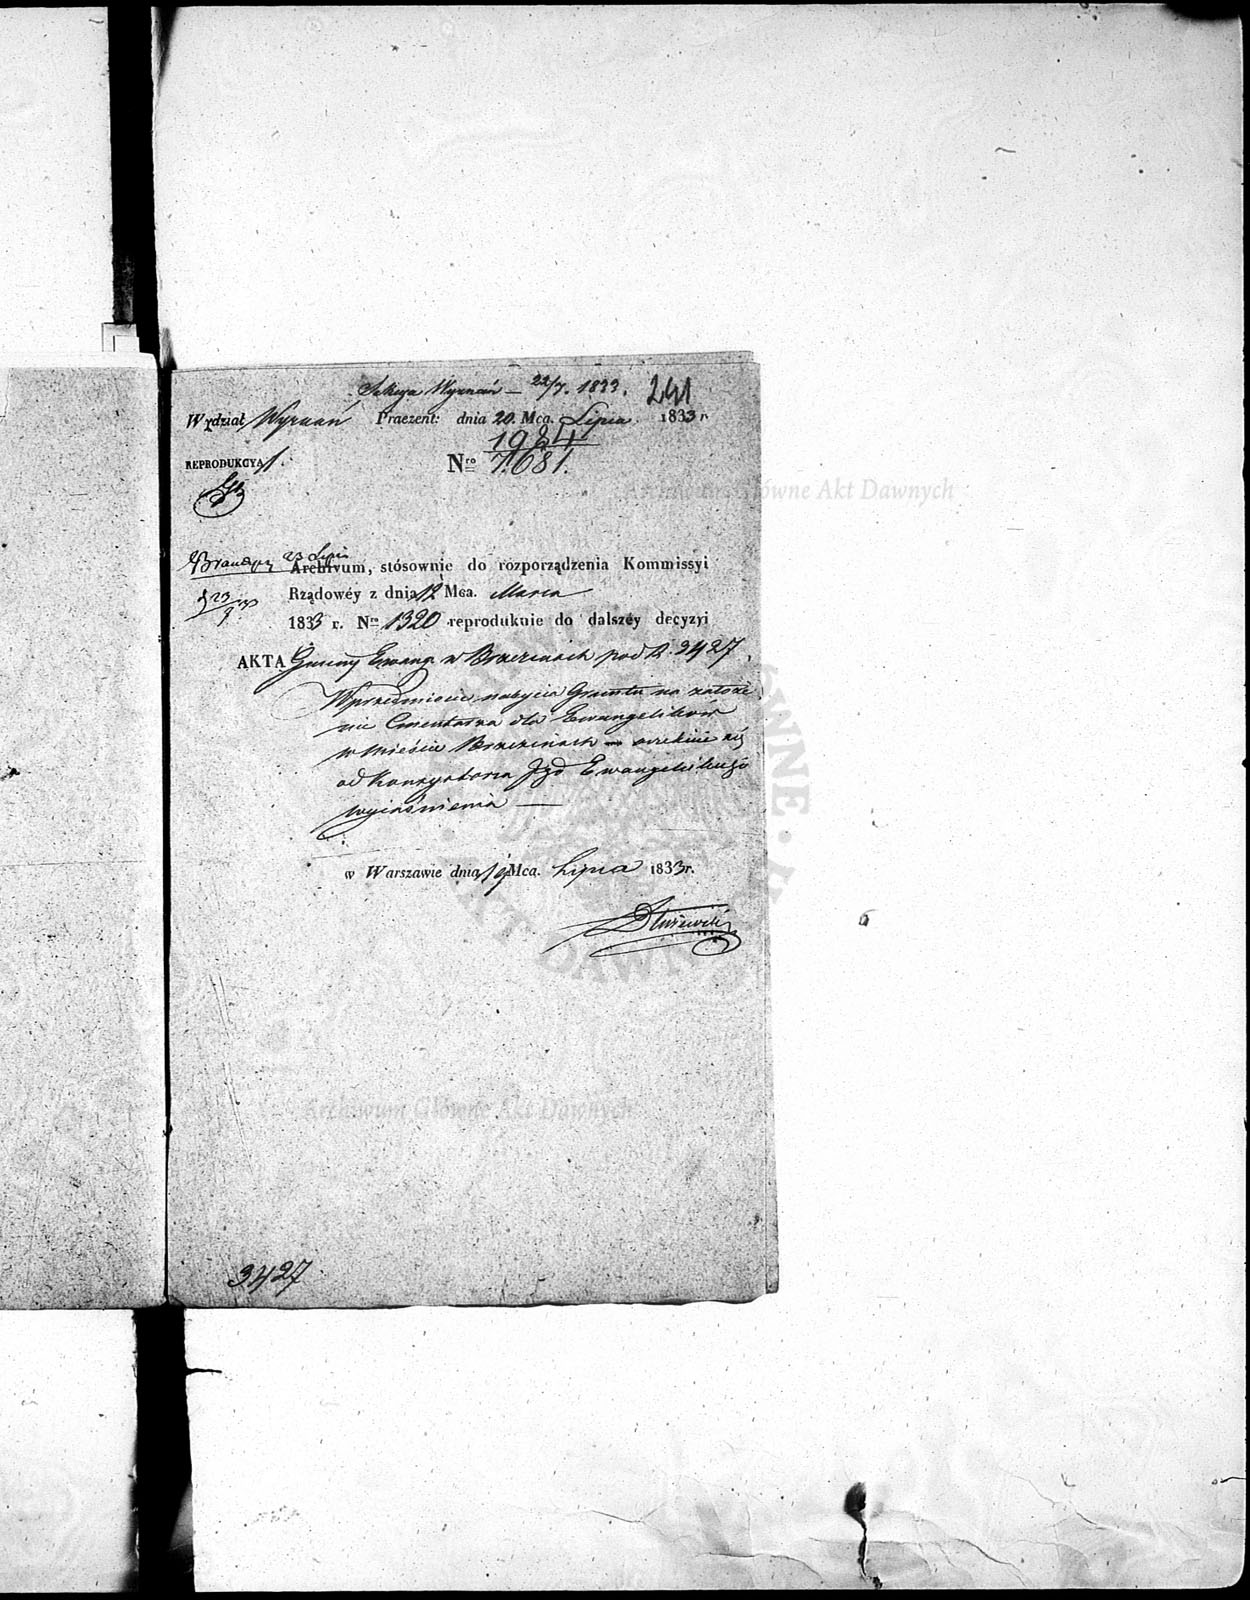 Sekcya Wyznań — 22/7. 1833.
241
Wydział Wyznań Praezent: dnia 20. Mca. Lipca. 1833 r
1984
REPRODUKCYA 1.
Nro 7.681.
23 Lipca
Archivum, stósownie do rozporządzenia Kommissyi
Rządowéy z dnia 12 Mca. Marca
1833 r. Nro 1320 reprodukuie do dalszéy decyzyi
AKTA Gminy Ewang. w Brzezinach pod N. 3427,
W przedmiocie nabycia Gruntu na założe
nie Cmentarza dla Ewangelików
w Mieście Brzezinach — oczekuie się
od Konsystorza Jgo Ewangelickiego
wyiaśnienia —
w Warszawie dnia 19 Mca. Lipca 1833r.
3427
Archiwum Główne Akt Dawnych
Archiwum Główne Akt Dawnych